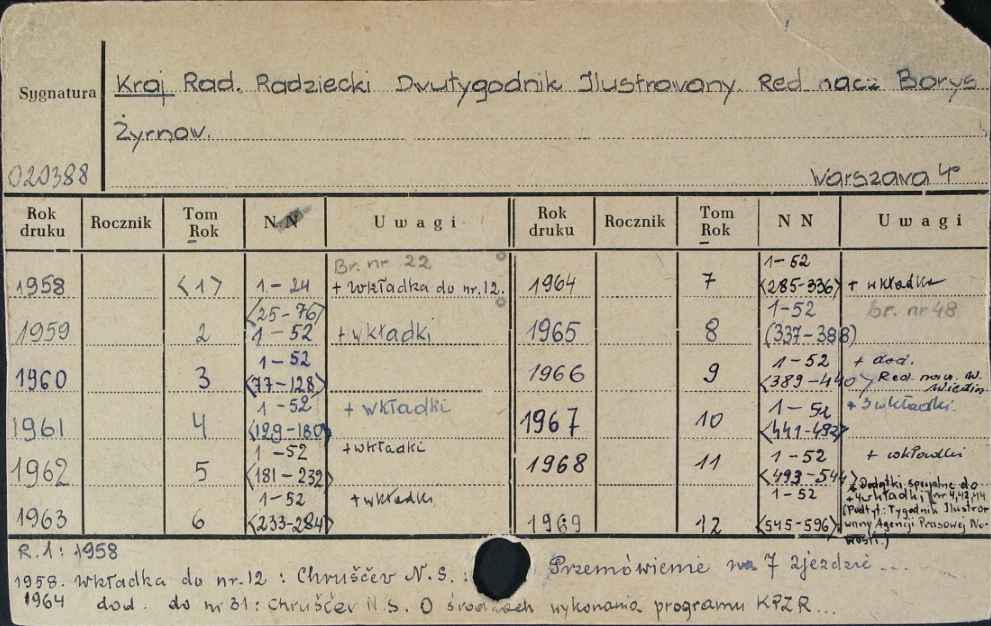 Sygnatura
Kraj Rad. Radziecki Dwutygodnik Ilustrowany. Red nacz Borys
Żyrnov.
020388
Warszawa 4°
Rok druku Rocznik Tom Rok N N U w a g i Rok druku Rocznik Tom Rok N N U w a g i
Br. nr 22
1958 <1> 1-24 + wkładka do nr. 12.
1959 2 <25-76> 1-52 + wkładki
1960 3 1-52 <77-128>
1961 4 1-52 <129-180> + wkładki
1962 5 1-52 <181-232> + wkładki
1963 6 1-52 <233-284> + wkładki
1964 7 1-52 <285-336> + wkładka
1965 8 1-52 (337-388) br. nr 48
1966 9 1-52 <389-440> + dod. Red. nacz. W.
1967 10 1-52 <441-492> + 3 wkładki.
1968 11 1-52 <493-544> + wkładki
1969 12 1-52 <545-596> + Dodatki specjalne do
+ 4 wkładki [nr 4,42,44
(Podtyt: Tygodnik Ilustro-
wany Agencji Prasowej No-
wosti.)
R. 1: 1958
1958. Wkładka do nr. 12 : Chruščev N. S. : Przemówienie na 7 zjeździe ...
1964 dod. do nr 31: Chruščev N. S. O środkach wykonania programu KPZR...